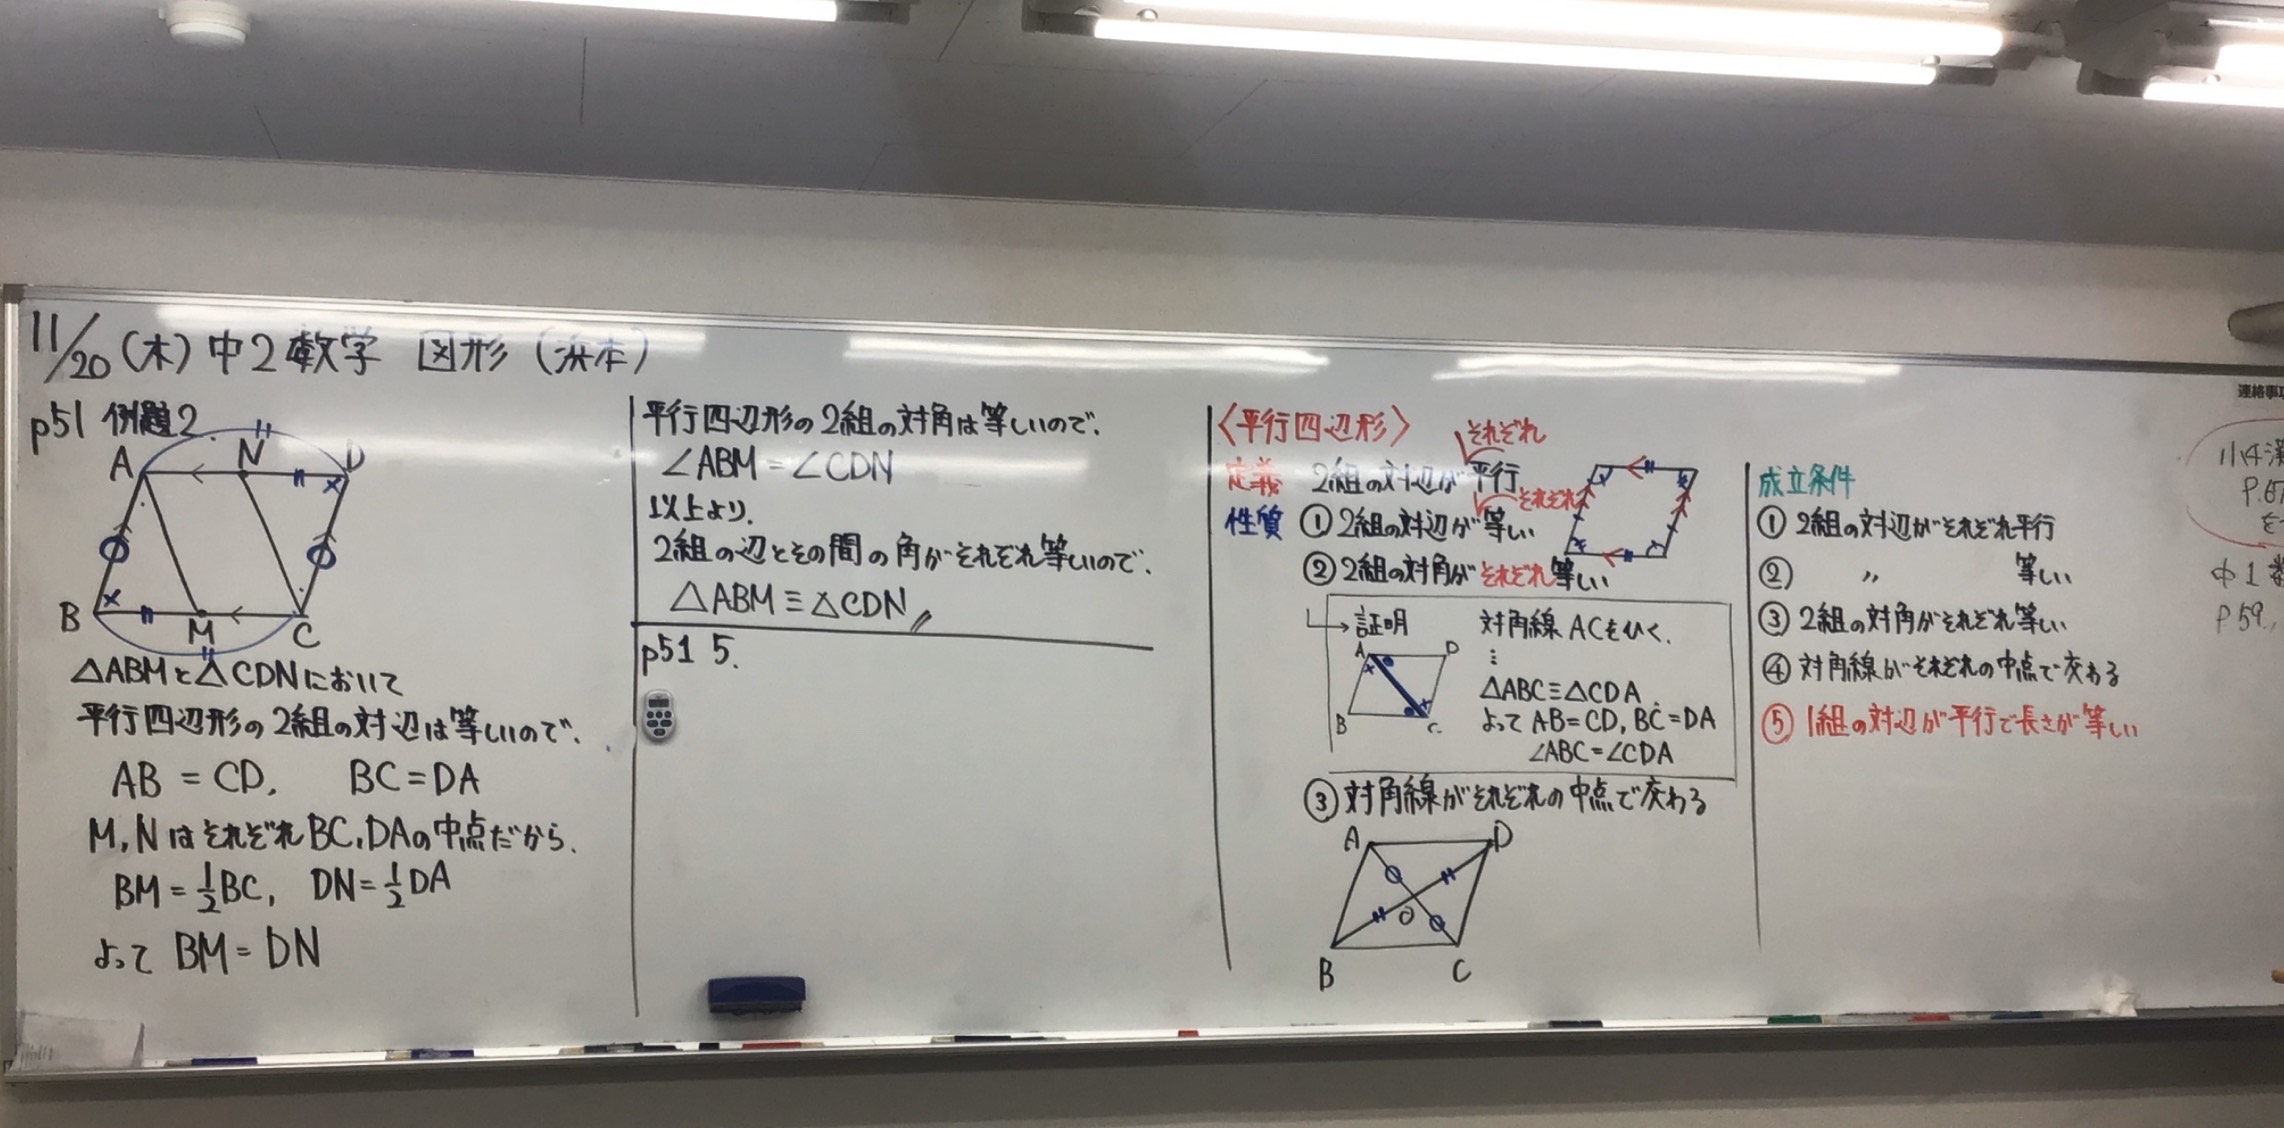 11/20(木)中2数学 図形(浜本)
p51 例題2
A N D
B M C
△ABMと△CDNにおいて
平行四辺形の2組の対辺は等しいので、
AB = CD, BC = DA
M, NはそれぞれBC, DAの中点だから、
BM = 1/2 BC, DN = 1/2 DA
よって BM = DN
平行四辺形の2組の対角は等しいので、
∠ABM = ∠CDN
以上より、
2組の辺とその間の角がそれぞれ等しいので、
△ABM ≡ △CDN
p51 5.
〈平行四辺形〉
それぞれ
定義 2組の対辺が平行
それぞれ
性質 ①2組の対辺が等しい
②2組の対角がそれぞれ等しい
→証明 対角線ACをひく、
A D
B C
⋮
△ABC≡△CDA
よって AB=CD, BC=DA
∠ABC=∠CDA
③対角線がそれぞれの中点で交わる
A D
O
B C
成立条件
① 2組の対辺がそれぞれ平行
② 〃 等しい
③ 2組の対角がそれぞれ等しい
④ 対角線がそれぞれの中点で交わる
⑤ 1組の対辺が平行で長さが等しい
連絡事項
中1
P59.